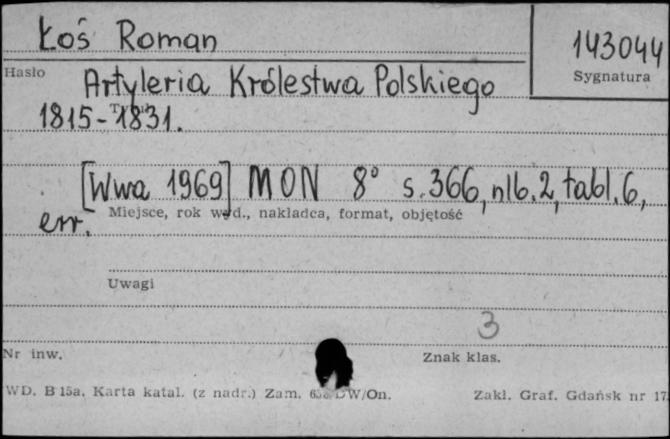 Łoś Roman
143044
Hasło
Sygnatura
Artyleria Królestwa Polskiego
1815-1831.
[Wwa 1969] MON 8° s.366, nlb.2, tabl.6,
Miejsce, rok wyd., nakładca, format, objętość
err.
Uwagi
3
Nr inw.
Znak klas.
WD. B 15a, Karta katal. (z nadr.) Zam. W/On.
Zakł. Graf. Gdańsk nr 17